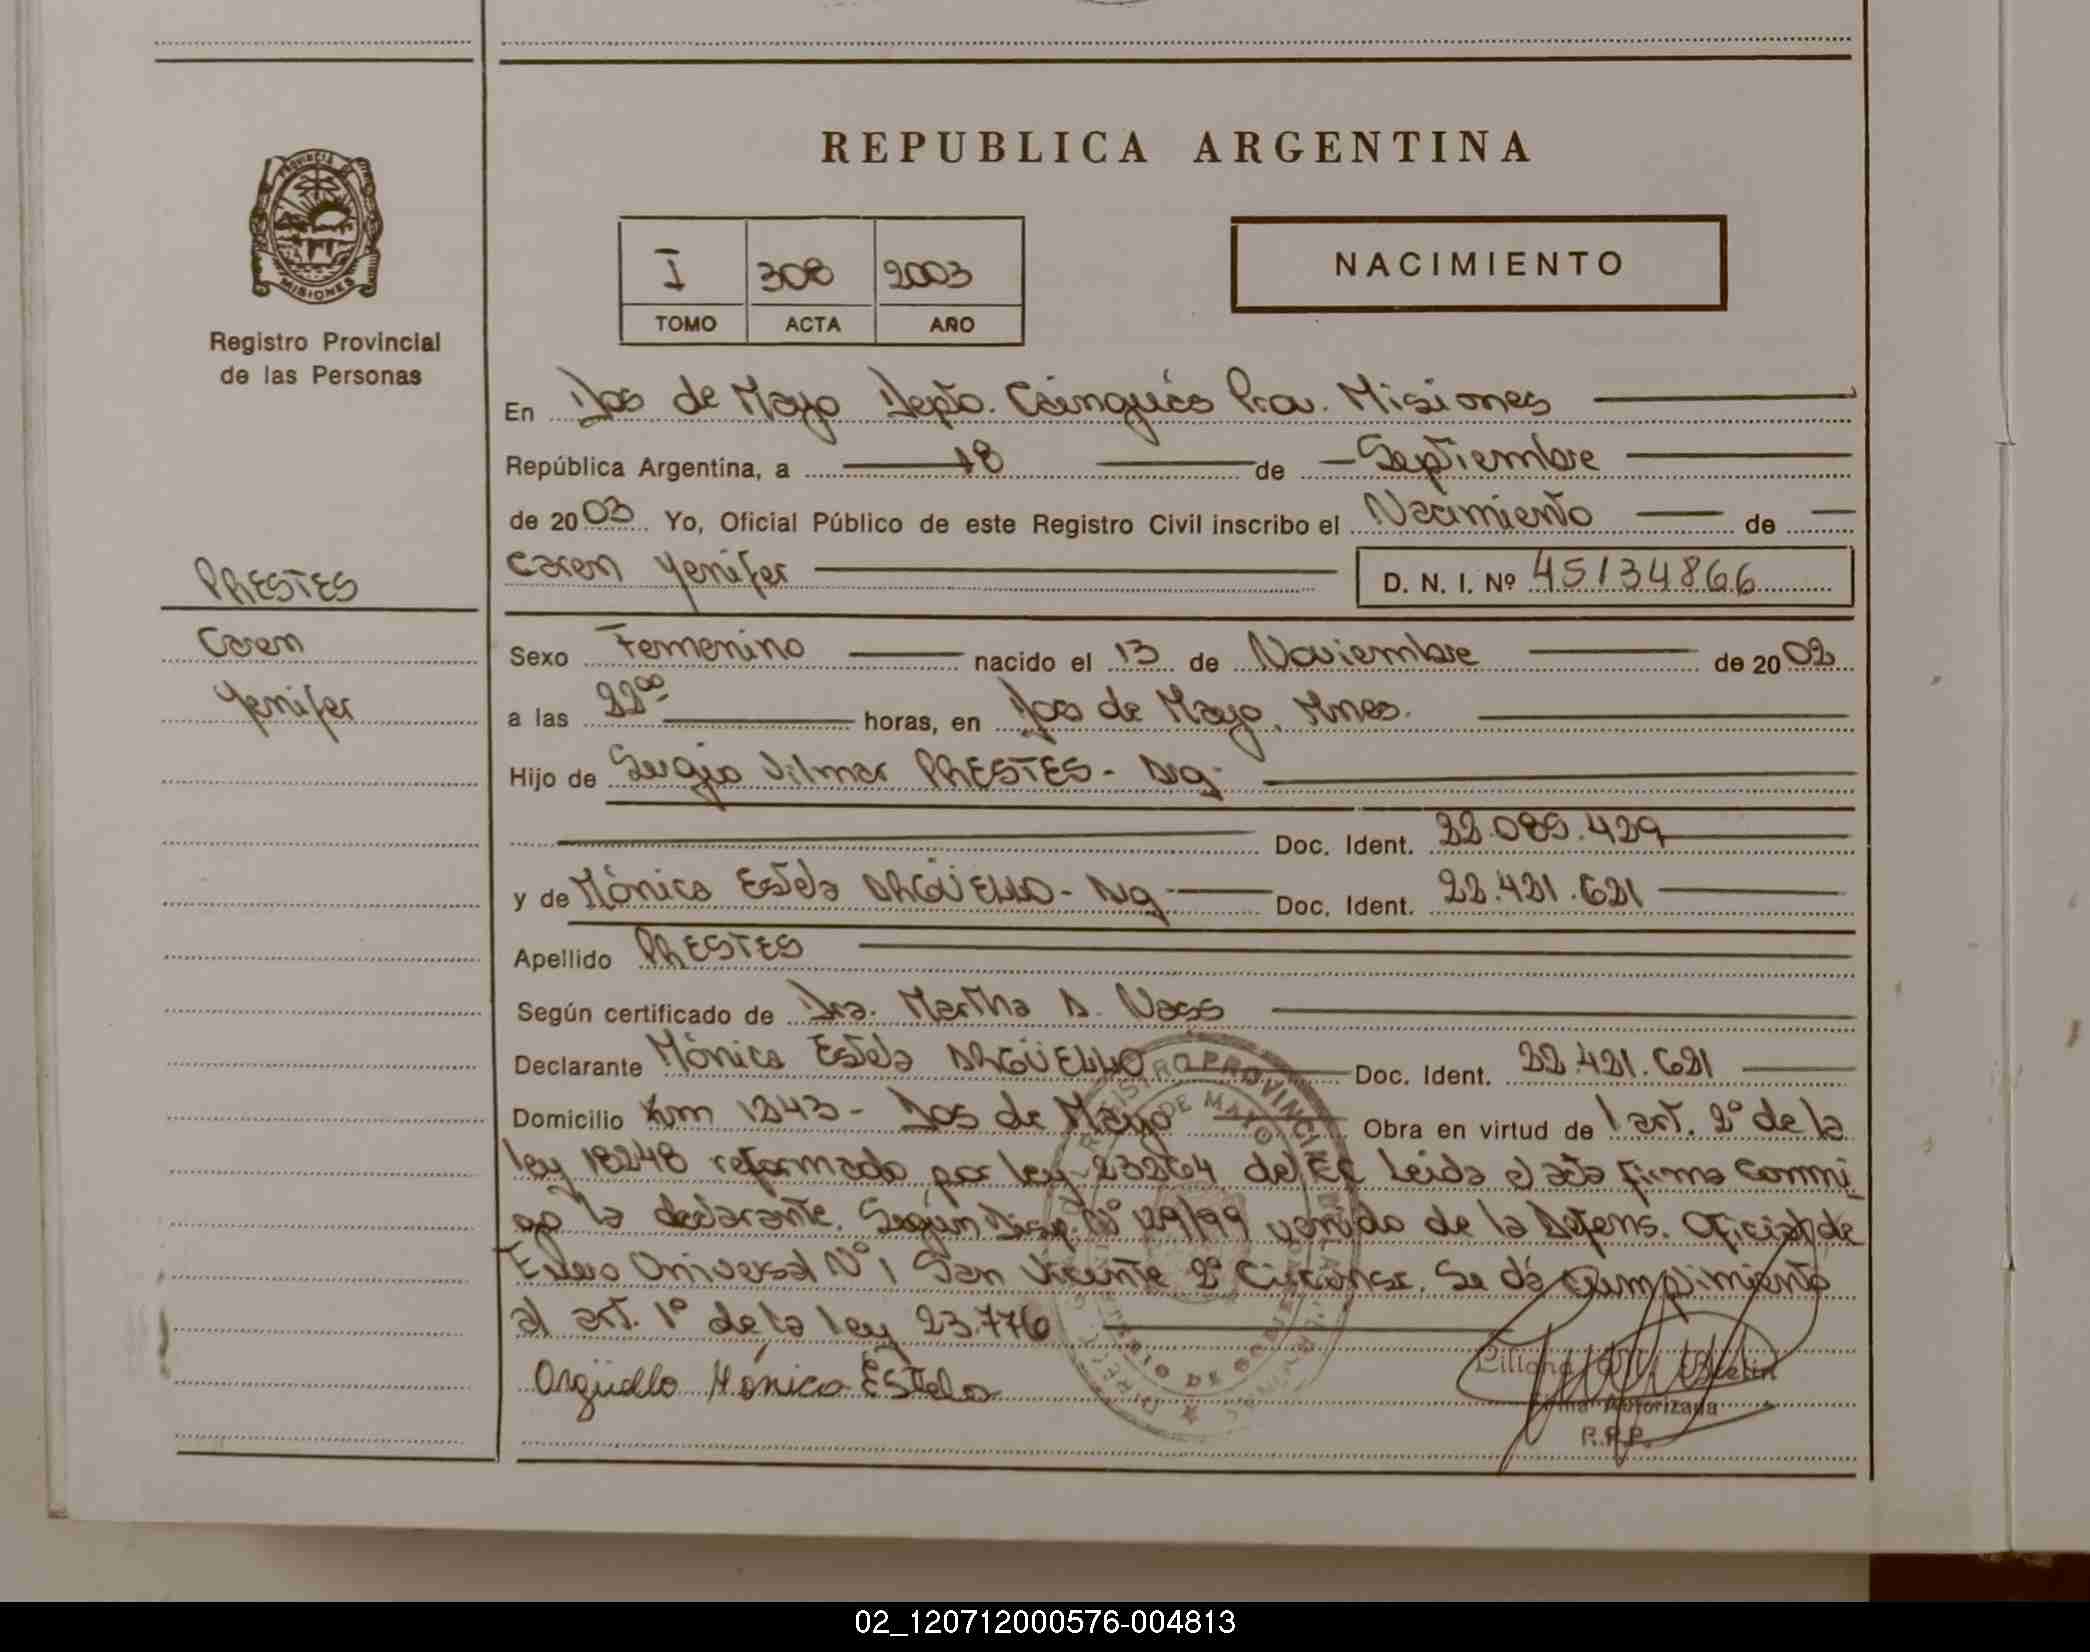 REPUBLICA ARGENTINA
PROVINCIA DE
MISIONES
Registro Provincial
de las Personas
I 308 2003
TOMO ACTA AÑO
NACIMIENTO
En Dos de Mayo Depto. Cainguás Prov. Misiones
República Argentina, a 18 de Septiembre
de 2003 Yo, Oficial Público de este Registro Civil inscribo el Nacimiento de
Caren Yenifer D. N. I. Nº 45134866
PRESTES
Caren
Yenifer
Sexo Femenino nacido el 13 de Noviembre de 2002
a las 22⁰⁰ horas, en Dos de Mayo, Mnes.
Hijo de Sergio Vilmar PRESTES - Arg.
Doc. Ident. 22.089.429
y de Mónica Estela ARGÜELLO - Arg. Doc. Ident. 22.421.621
Apellido PRESTES
Según certificado de Dra. Martha A. Nass
Declarante Mónica Estela ARGÜELLO Doc. Ident. 22.421.621
Domicilio Km 1243 - Dos de Mayo Obra en virtud de l art. 2° de la
ley 18248 reformado por ley 23264 del Leida el acta firma conmi
go la declarante. Según Disp. N° 129/99 de la Defens. Oficial de
Fuero Universal N° 1 San Vicente 2° Circunsc. Se dá cumplimiento
al art. 1° de la ley 23.776
Argüello Mónica Estela
Liliana
Firma Autorizada
R.P.P.
02_120712000576-004813